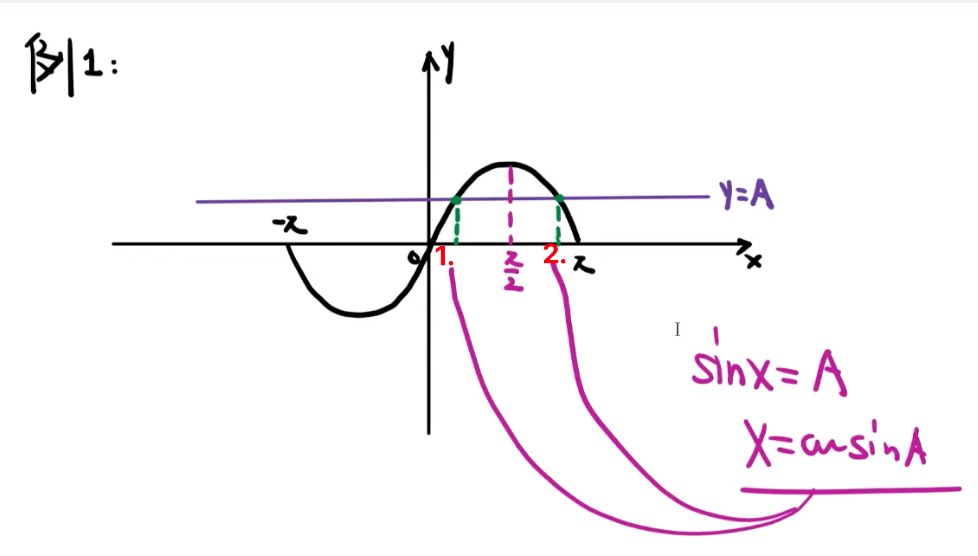 例1:
y
y=A
-π
0
1.
π/2
2.
π
x
sinx=A
x=arcsinA